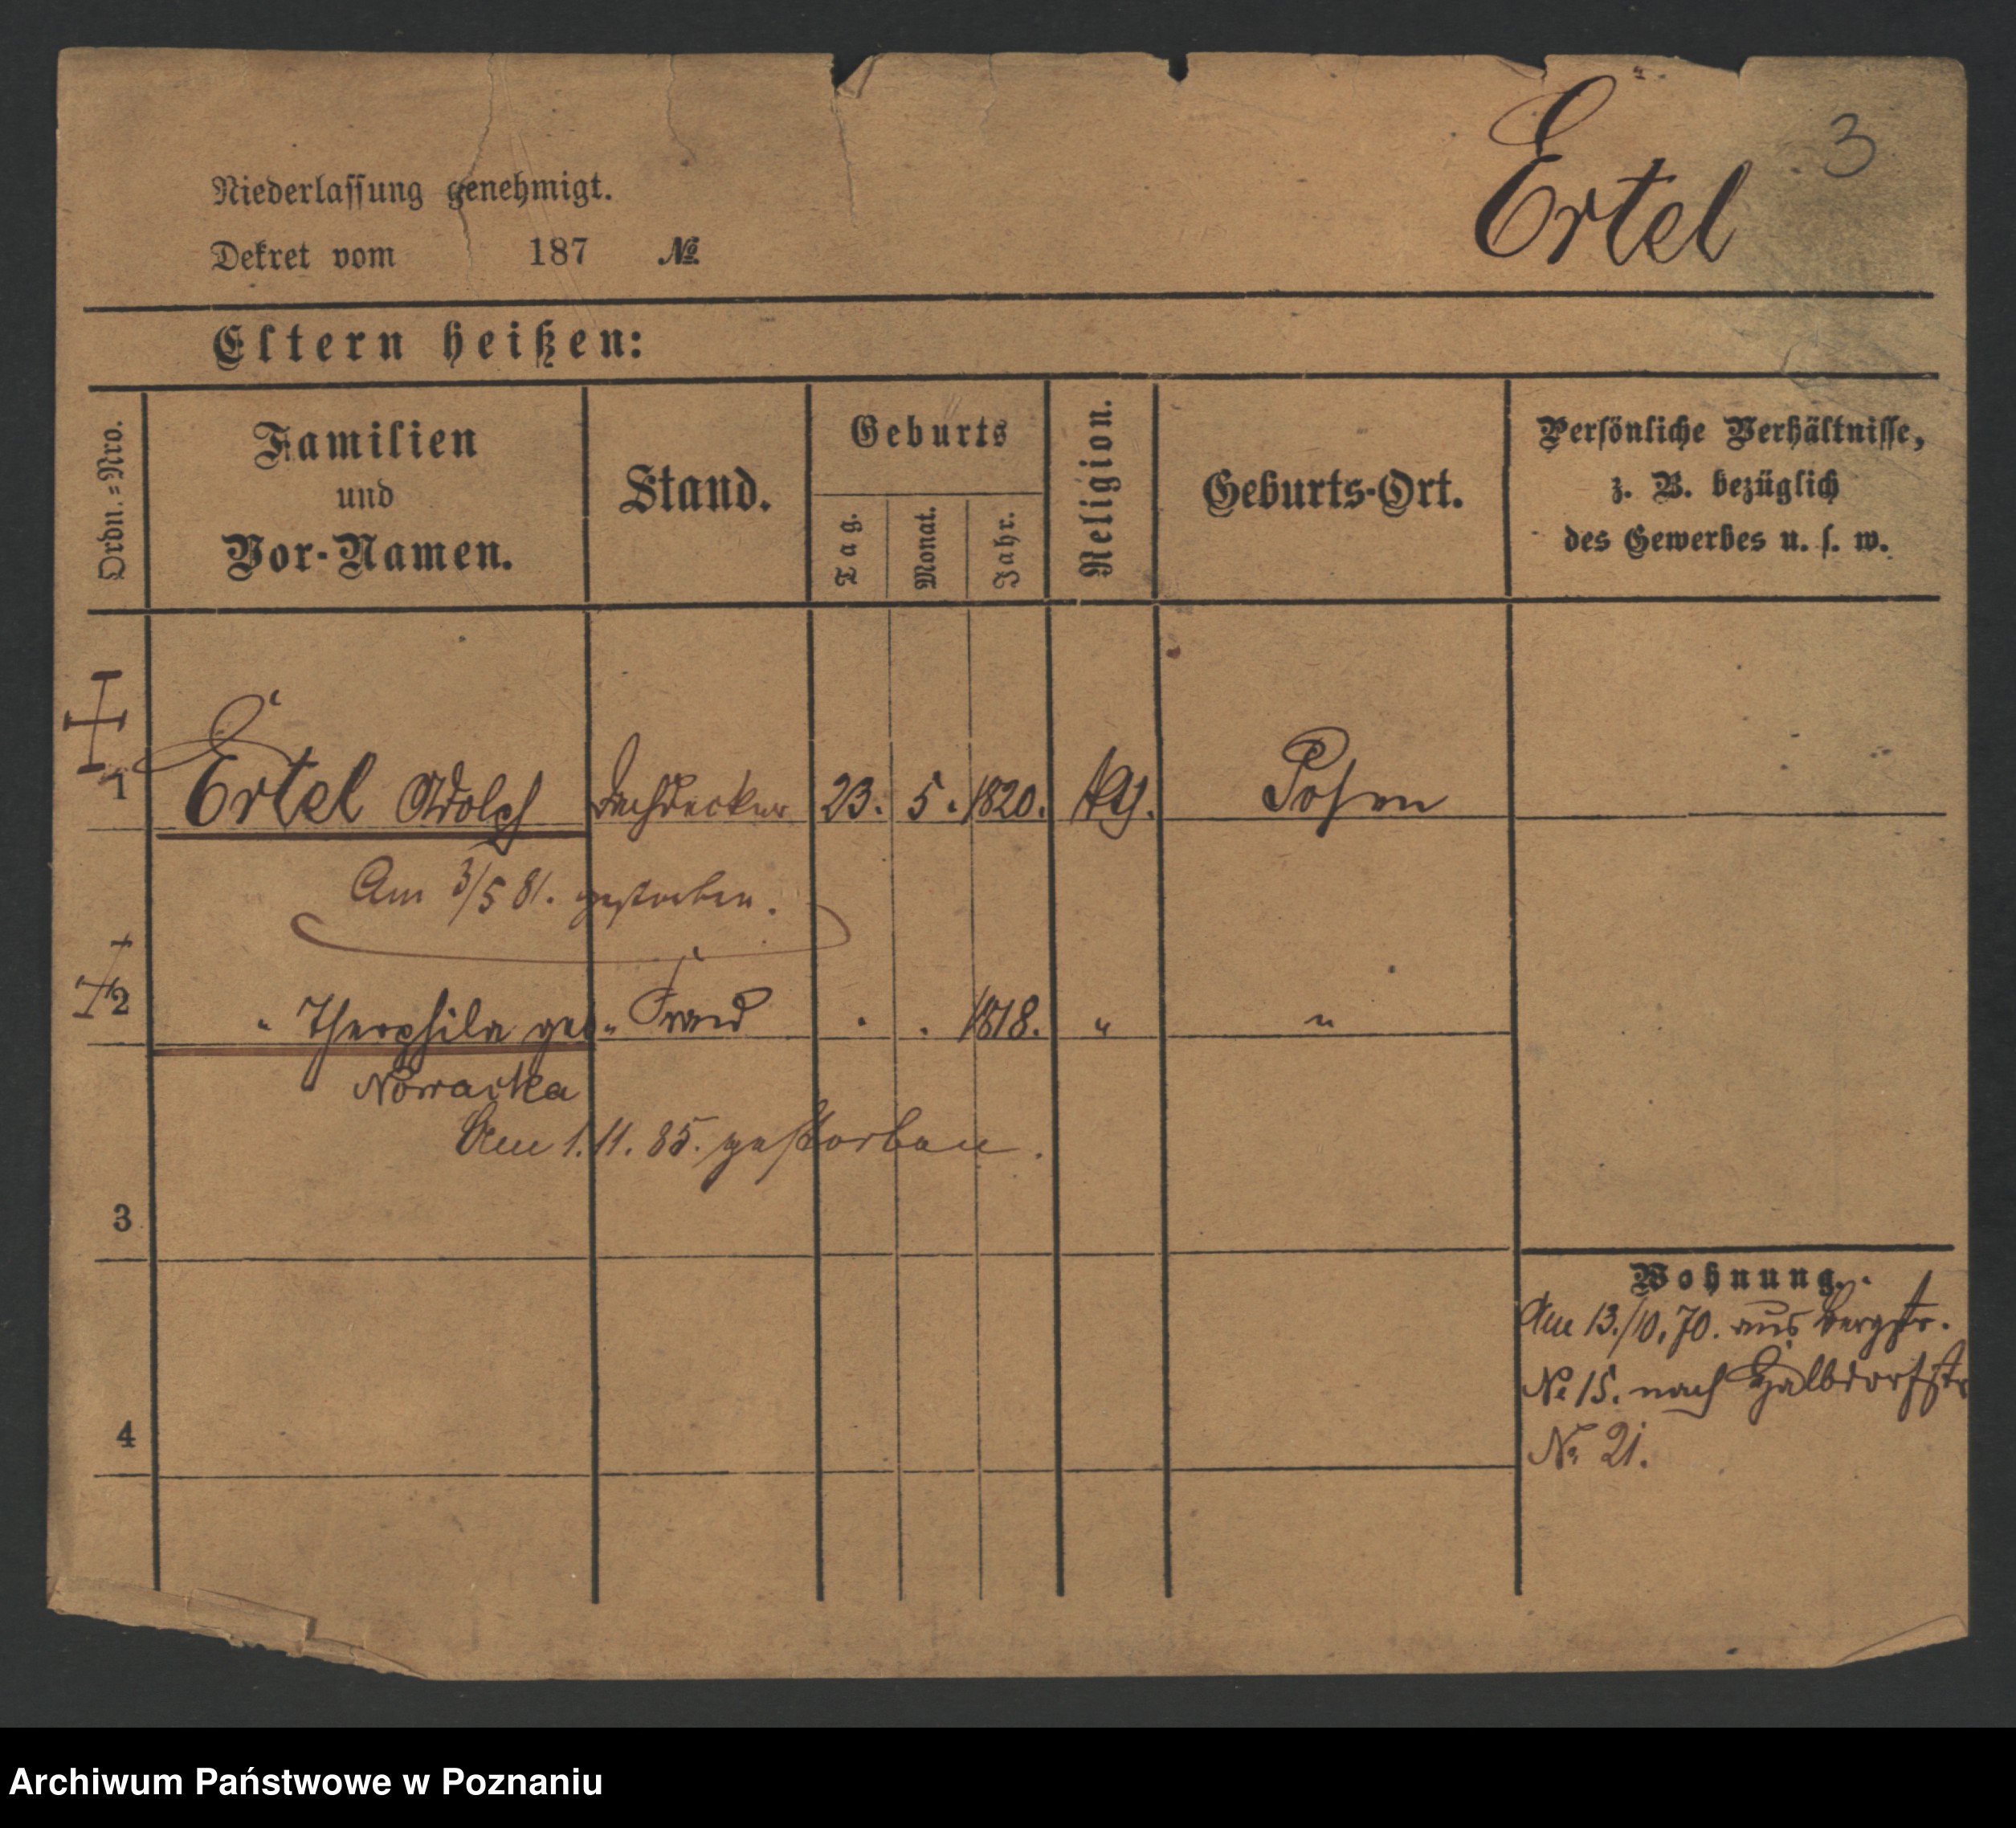 Ertel
3
Niederlassung genehmigt.
Dekret vom 187 №
Eltern heißen:
Ordn.=Nro.
Familien
und
Vor-Namen.
Stand.
Geburts
Tag.
Monat.
Jahr.
Religion.
Geburts-Ort.
Persönliche Verhältnisse,
z. B. bezüglich
des Gewerbes u. s. w.
1 Ertel Adolph Dachdecker 23. 5. 1820. Posen
Am 3/5 81. gestorben.
2 " Theophila geb. 1818. " "
Nowacka
Am 1.11.85. gestorben.
3
4
Wohnung.
Am 13./10.70. aus Bergstr.
№ 15. nach Halbdorfstr
№ 21.
Archiwum Państwowe w Poznaniu